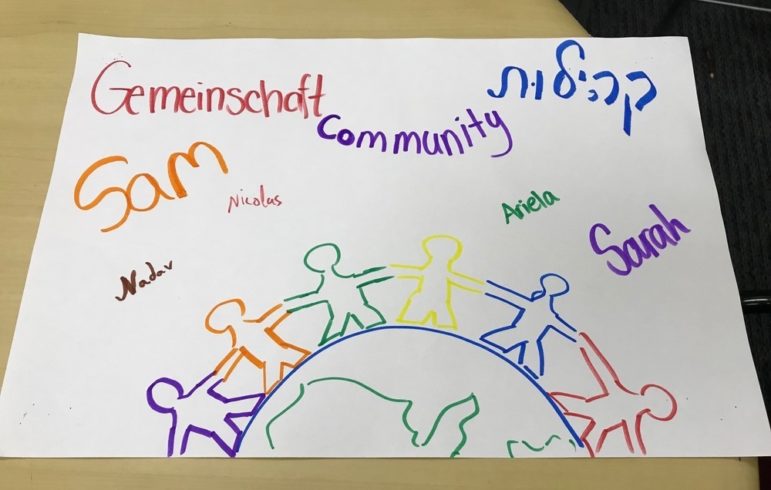 Gemeinschaft
קהילות
Community
Sam
Nicolas
Ariela
Sarah
Nadav